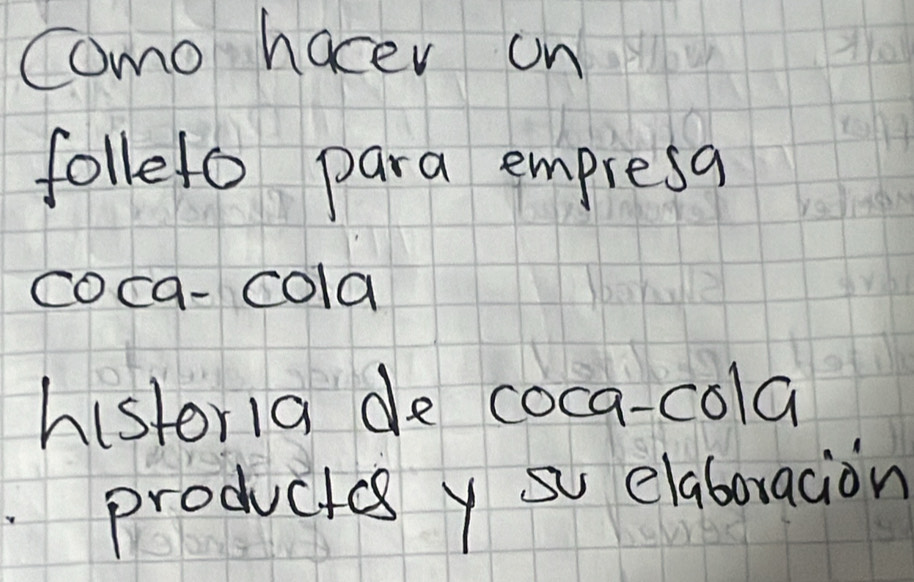 Como hacer un
folleto para empresa
coca-cola
historia de coca-cola
. productos y su elaboración